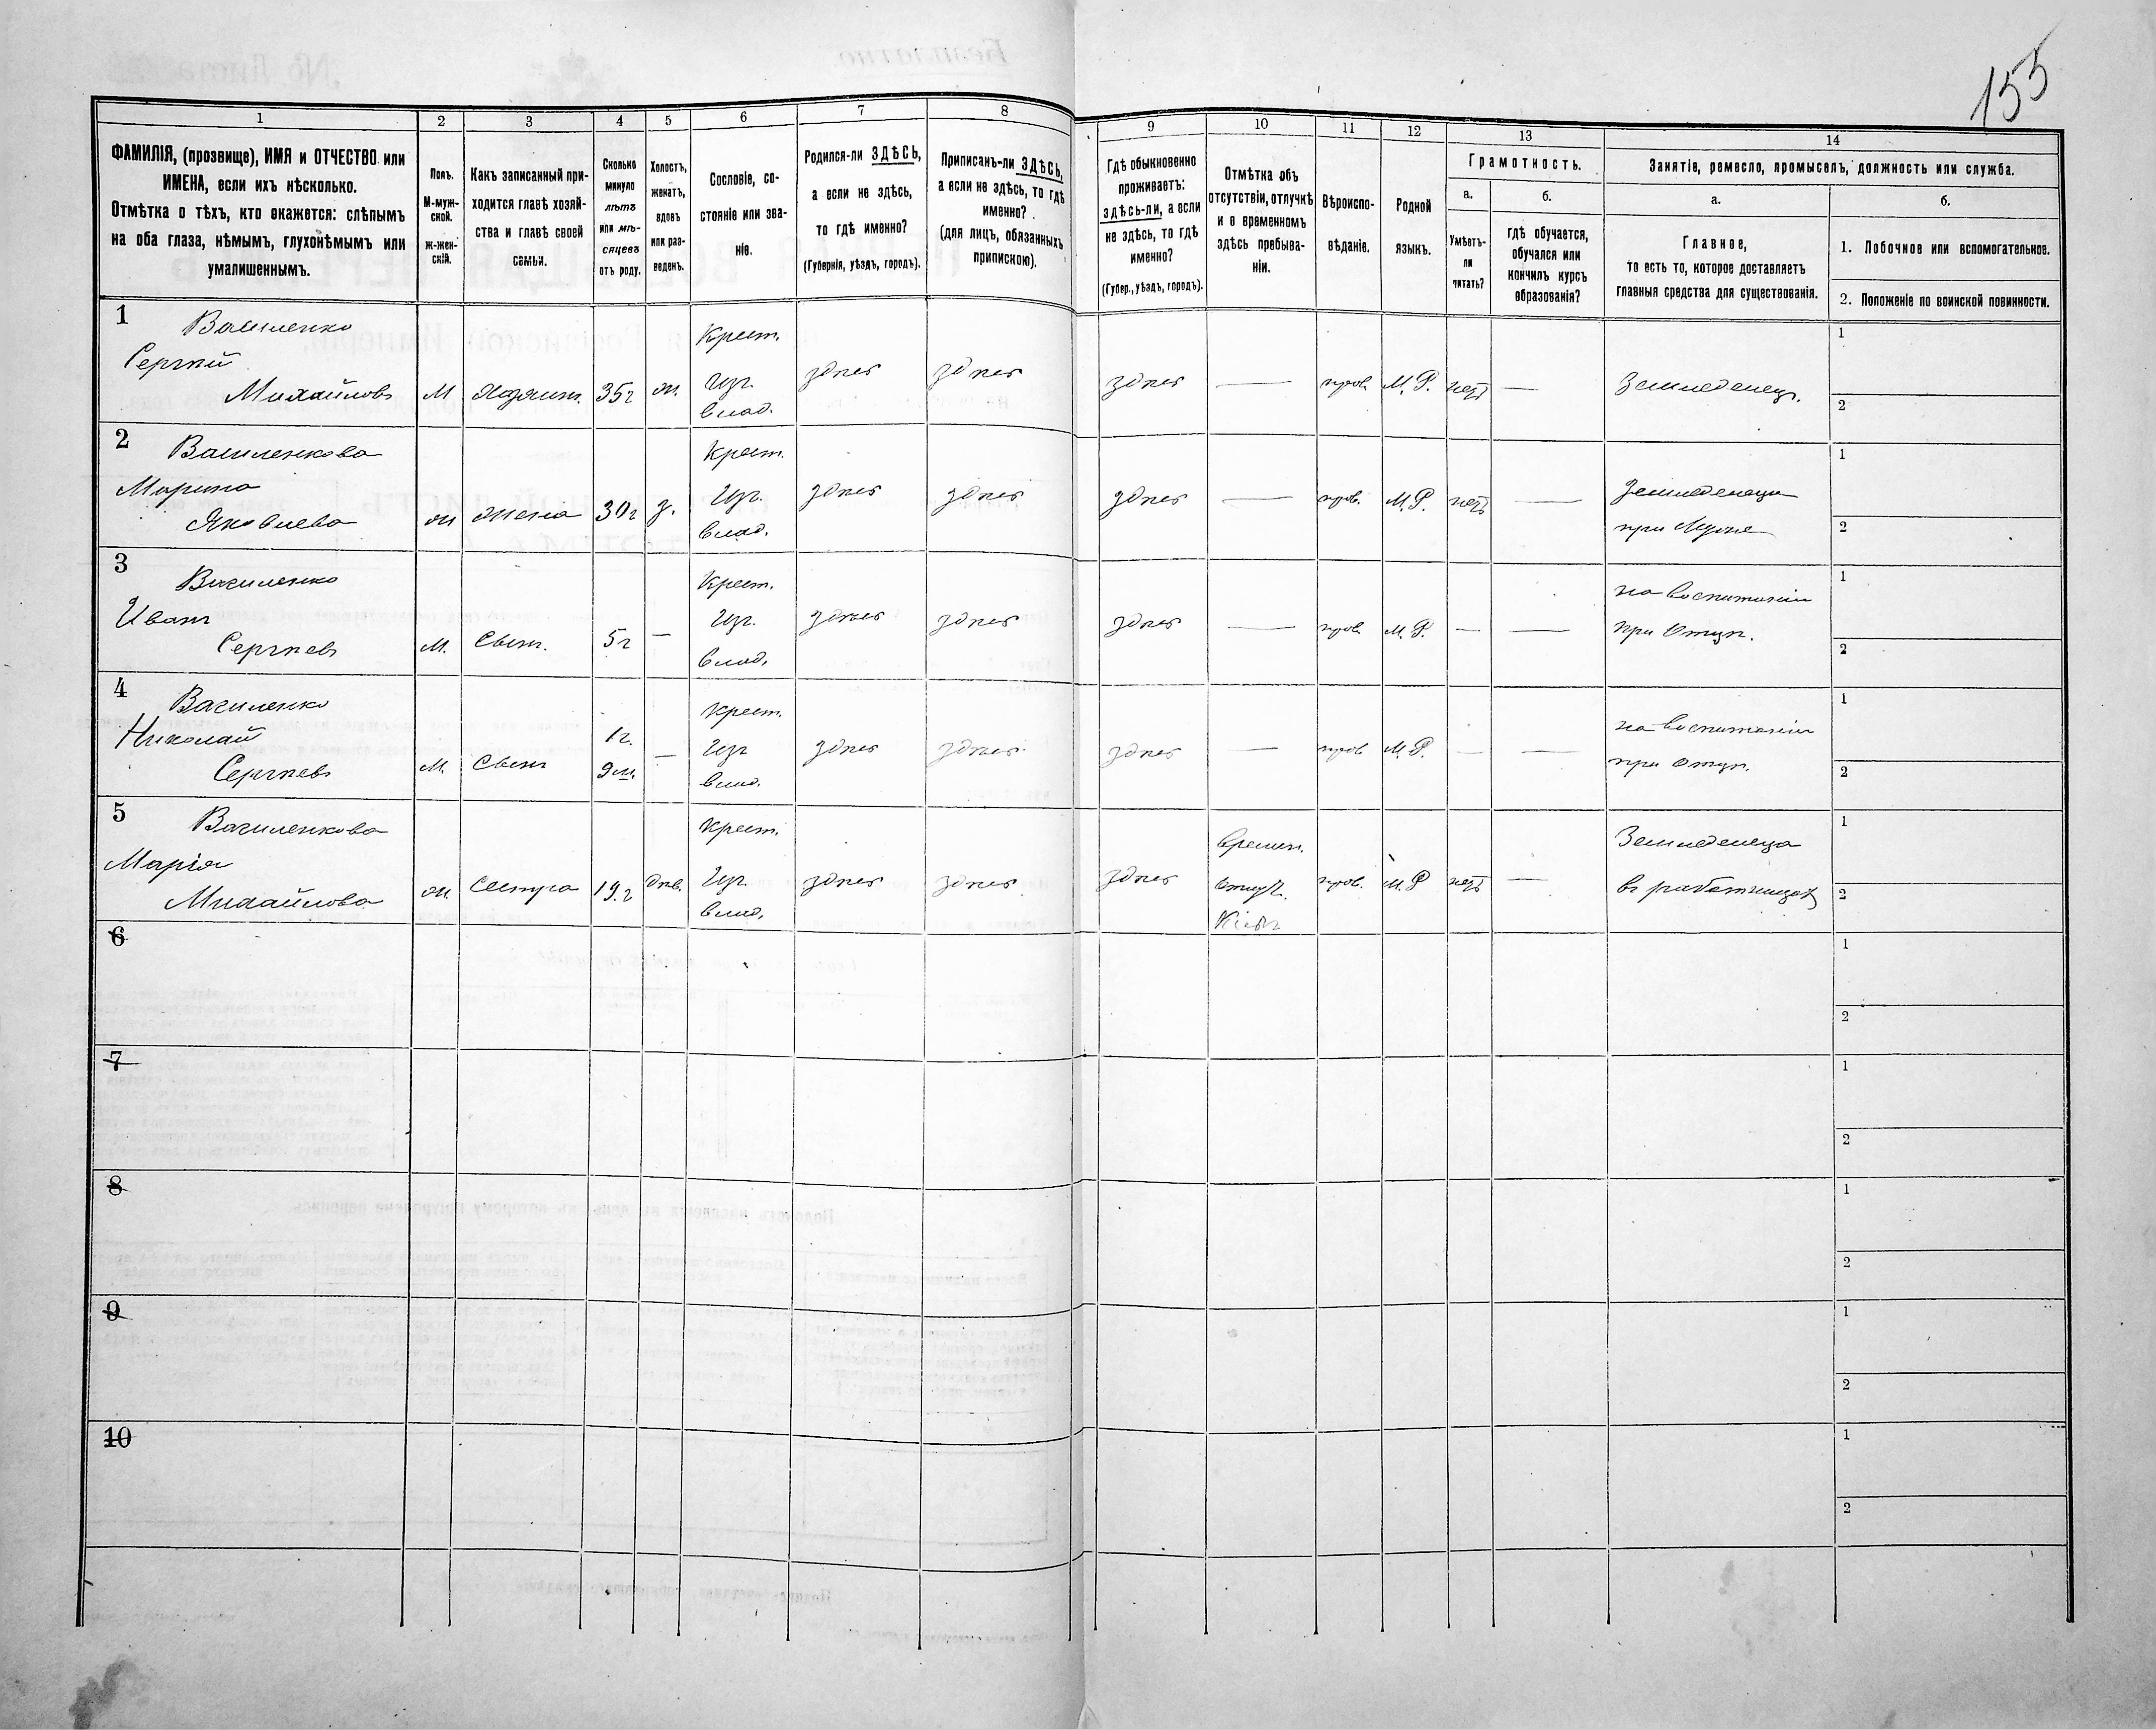 155
1 2 3 4 5 6 7 8 9 10 11 12 13 14
ФАМИЛІЯ, (прозвище), ИМЯ и ОТЧЕСТВО или
ИМЕНА, если ихъ нѣсколько.
Отмѣтка о тѣхъ, кто окажется: слѣпымъ
на оба глаза, нѣмымъ, глухонѣмымъ или
умалишеннымъ.
Полъ.
М-муж-
ской.
ж-жен-
скій.
Какъ записанный при-
ходится главѣ хозяй-
ства и главѣ своей
семьи.
Сколько
минуло
лѣтъ
или мѣ-
сяцевъ
отъ роду.
Холостъ,
женатъ,
вдовъ
или раз-
веденъ.
Сословіе, со-
стояніе или зва-
ніе.
Родился-ли ЗДѢСЬ,
а если не здѣсь,
то гдѣ именно?
(Губернія, уѣздъ, городъ).
Приписанъ-ли ЗДѢСЬ,
а если не здѣсь, то гдѣ
именно?
(для лицъ, обязанныхъ
припискою).
Гдѣ обыкновенно
проживаетъ:
здѣсь-ли, а если
не здѣсь, то гдѣ
именно?
(Губер., уѣздъ, городъ).
Отмѣтка объ
отсутствіи, отлучкѣ
и о временномъ
здѣсь пребыва-
ніи.
Вѣроиспо-
вѣданіе.
Родной
языкъ.
Грамотность.
а.
Умѣетъ-
ли
читать?
б.
гдѣ обучается,
обучался или
кончилъ курсъ
образованія?
Занятіе, ремесло, промыселъ, должность или служба.
а.
Главное,
то есть то, которое доставляетъ
главныя средства для существованія.
б.
1. Побочное или вспомогательное.
2. Положеніе по воинской повинности.
1 Василенко
Сергѣй
Михайловъ М Хозяинъ 35 г ж. Крест. Изъ влад. здѣсь здѣсь здѣсь — прав. М.Р. нѣтъ — Земледелец. 1 2
2 Василенкова
Марина
Яковлева ж жена 30 г з. Крест. Изъ влад. здѣсь здѣсь здѣсь — прав. М.Р. нѣтъ — Земледелица
при Мужѣ 1 2
3 Василенко
Иванъ
Сергѣевъ М. Сынъ. 5 г — Крест. Изъ влад. здѣсь здѣсь здѣсь — прав. М.Р. — — на воспитаніи
при Отцѣ. 1 2
4 Василенко
Николай
Сергѣевъ М. Сынъ 1 г. 9 м. — Крест. Изъ влад. здѣсь здѣсь здѣсь — прав М.Р. — — на воспитаніи
при Отцѣ. 1 2
5 Василенкова
Марія
Михайлова ж. Сестра 19. г дѣв. Крест. Изъ влад. здѣсь здѣсь здѣсь Времен. Отлуч. Кіевъ прав. М.Р нѣтъ — Земледелица
въ работницахъ 1 2
6 1 2
7 1 2
8 1 2
9 1 2
10 1 2